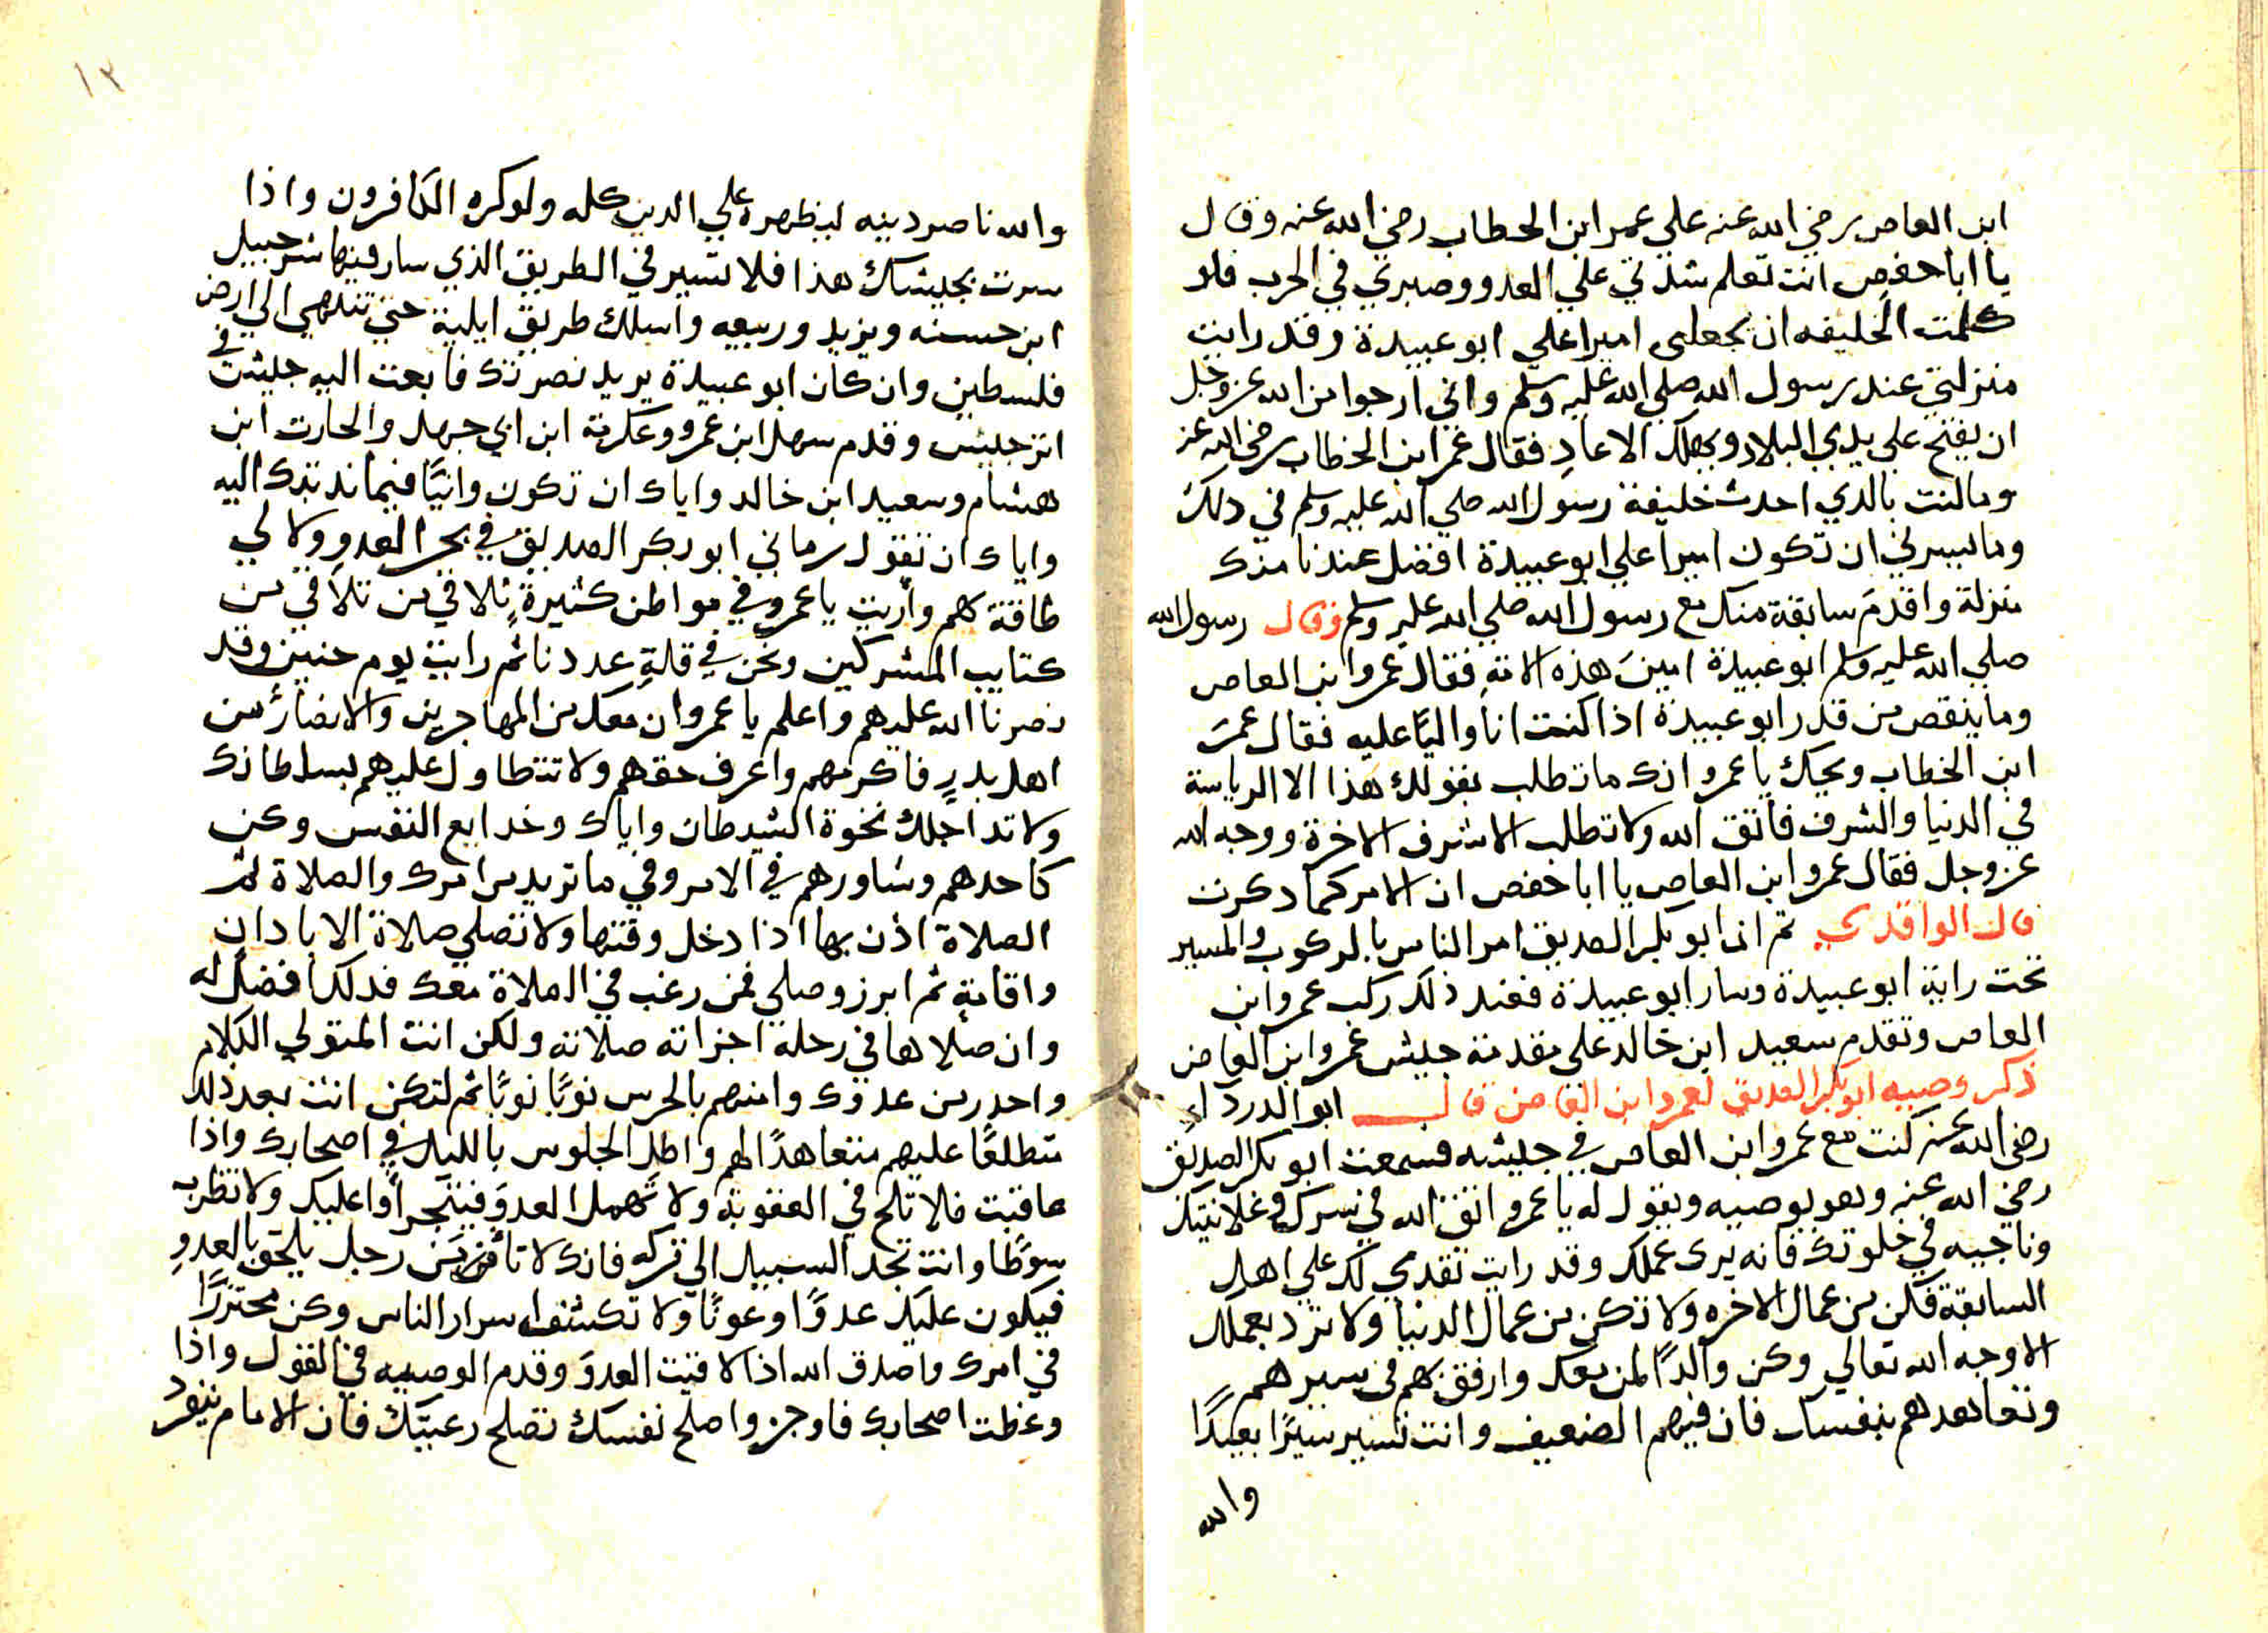 ابن العاص رضي الله عنه علي عمر ابن الحطاب رضي الله عنه وقال
يا ابا حفص انت تعلم شدتي علي العدو وصبري في الحرب فلو
كلمت الخليفه ان يجعلى اميرا علي ابو عبيدة وقد رايت
منزلتي عند رسول الله صلي الله عليه وسلم واني ارجوا من الله عز وجل
ان يفتح علي يدي البلاد ويهلك الاعادِ فقال عمر ابن الخطاب رضي الله عنه
وما لنت بالدي احدث خليفة رسول الله صلي الله عليه وسلم في دلك
وما ليسرني ان تكون اميرا علي ابو عبيدة افضل عندنا منك
منزلة واقدم سابقة منك مع رسول الله صلي الله عليه وسلم وقال رسول الله
صلي الله عليه وسلم ابو عبيدة امين هذه الامةِ فقال عمروا بن العاص
وما ينقص من قدر ابو عبيدة اذا كنت انا واليًا عليه فقال عمر
ابن الخطاب ويحك يا عمرو انك ما تطلب بقولك هذا الا الرياسة
في الدنيا والشرف فاتق الله ولا تطلب الا شرف الاخرة ووجه الله
عز وجل فقال عمرو ابن العاص يا ابا حفص ان الامر كما دكرت
قال الواقدي ثم ان ابو بكر الصديق امر الناس بالركوب والمسير
تحت راية ابو عبيدة وسار ابو عبيدة فعند ذلك ركب عمرو ابن
العاص وتقدم سعيد ابن خالد على مقدمة جيش عمرو ابن العاص
ذكر وصيه ابو بكر الصديق لعمرو ابن العاص قال ابو الدرداء
رضي الله عنه كنت مع عمرو ابن العاص في جيشه فسمعت ابو بكر الصديق
رضي الله عنه وهو يوصيه ويقول له يا عمرو اتق الله في سرك وعلانيتك
وناجيه في خلوتك فانه يرى عملك وقد رايت تقدمي لك علي اهل
السابقة فكن من عمال الاخره ولا تكن من عمال الدنيا ولا ترد بعملك
الا وجه الله تعالي وكن والدًا لمن معك وارفق بهم في سيرهم
وتعاهدهم بنفسك فان فيهم الضعيف وانت تسير سيرًا بعيدًا
والله
١٢
والله ناصر دينه ليظهره علي الدين كله ولو كره الكافرون واذا
سرت بجيشك هذا فلا تسير في الطريق الذي سار فيها شرحبيل
ابن حسنه ويزيد وربيعه واسلك طريق ايلية حتي تنتهي الي ارض
فلسطين وان كان ابو عبيدة يريد نصرتك فابعت اليه جيشٌ في
اثر جيش وقدم سهل ابن عمرو وعكرمة ابن ابي جهل والحارث ابن
هشام وسعيد ابن خالد واياك ان تكون وانيًا فيما ندبتك اليه
واياك ان تقول رماني ابو بكر الصديق في بحر العدو ولا لي
طاقة بهم وأريت يا عمرو في مواطن كثيرةٍ نلاقي من نلاقي من
كتايب المشركين ونحن في قلةِ عددنا ثم رايت يوم حنين وقد
نصرنا الله عليهم واعلم يا عمرو ان معك من المهاجرين والانصار من
اهل بدرٍ فاكرمهم واعرف حقهم ولا تتطاول عليهم بسلطانك
ولا تداخلك نخوة الشيطان واياك وخدايع النفس وكن
كاحدهم وشاورهم في الامر وفي ما تريد من امرك والصلاة ثم
الصلاة اذن بها اذا دخل وقتها ولا تصلي صلاة الا بادان
واقامةٍ ثم ابرز وصلي فمن رغب في الصلاة معك فدلك افضل له
وان صلاها في رحله اجزاته صلاته ولكن انت المتولي الكلام
واحدر من عدوك وامنهم بالحرس نوبًا نوبًا ثم لتكن انت بعد ذلك
متطلعًا عليهم متعاهدًا لهم واطل الجلوس بالليل في اصحابك واذا
عاقبت فلا تلح في العقوبة ولا تهمل العدوَ فيتجراوا عليك ولا تظرب
سوطًا وانت تجد السبيل الي تركه فانك لا تأمن من رجل يلحق بالعدوِ
فيكون عليك عدوًا وعونًا ولا تكشف اسرار الناس وكن محتررًا
في امرك واصدق الله اذا لاقيت العدوَ وقدم الوصيه في القول واذا
وعظت اصحابك فاوجز واصلح نفسك تصلح رعيتك فان الامام ينفرد